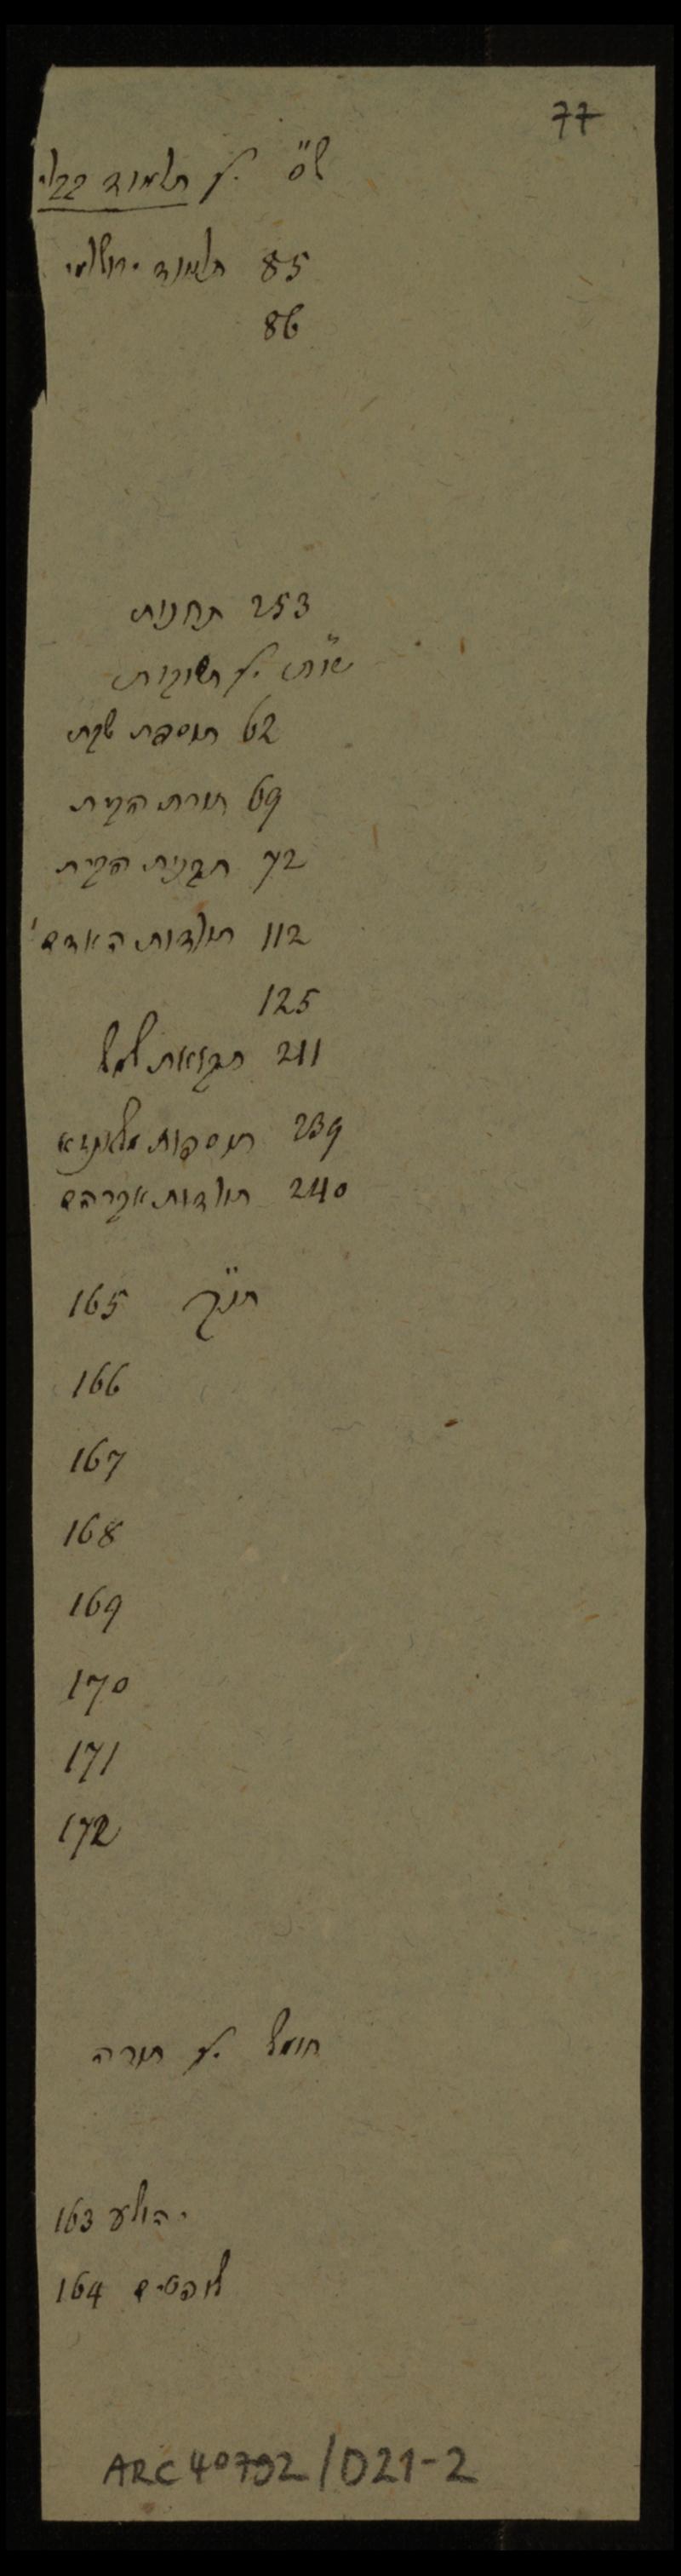 77
ש"ס ע' תלמוד בבלי
85 תלמוד ירושלמי
86
253 תחנות
שו"ת ע' תשובות
62 תוספת שבת
69 תורת הבית
72 תבנית הבית
112 תולדות האדם
125
211 תבואת שמש
239 תוספות
240 תולדות אברהם
תנ"ך 165
166
167
168
169
170
171
172
חומש ע' תורה
יהושע 163
שופטים 164
ARC 40792/D21-2